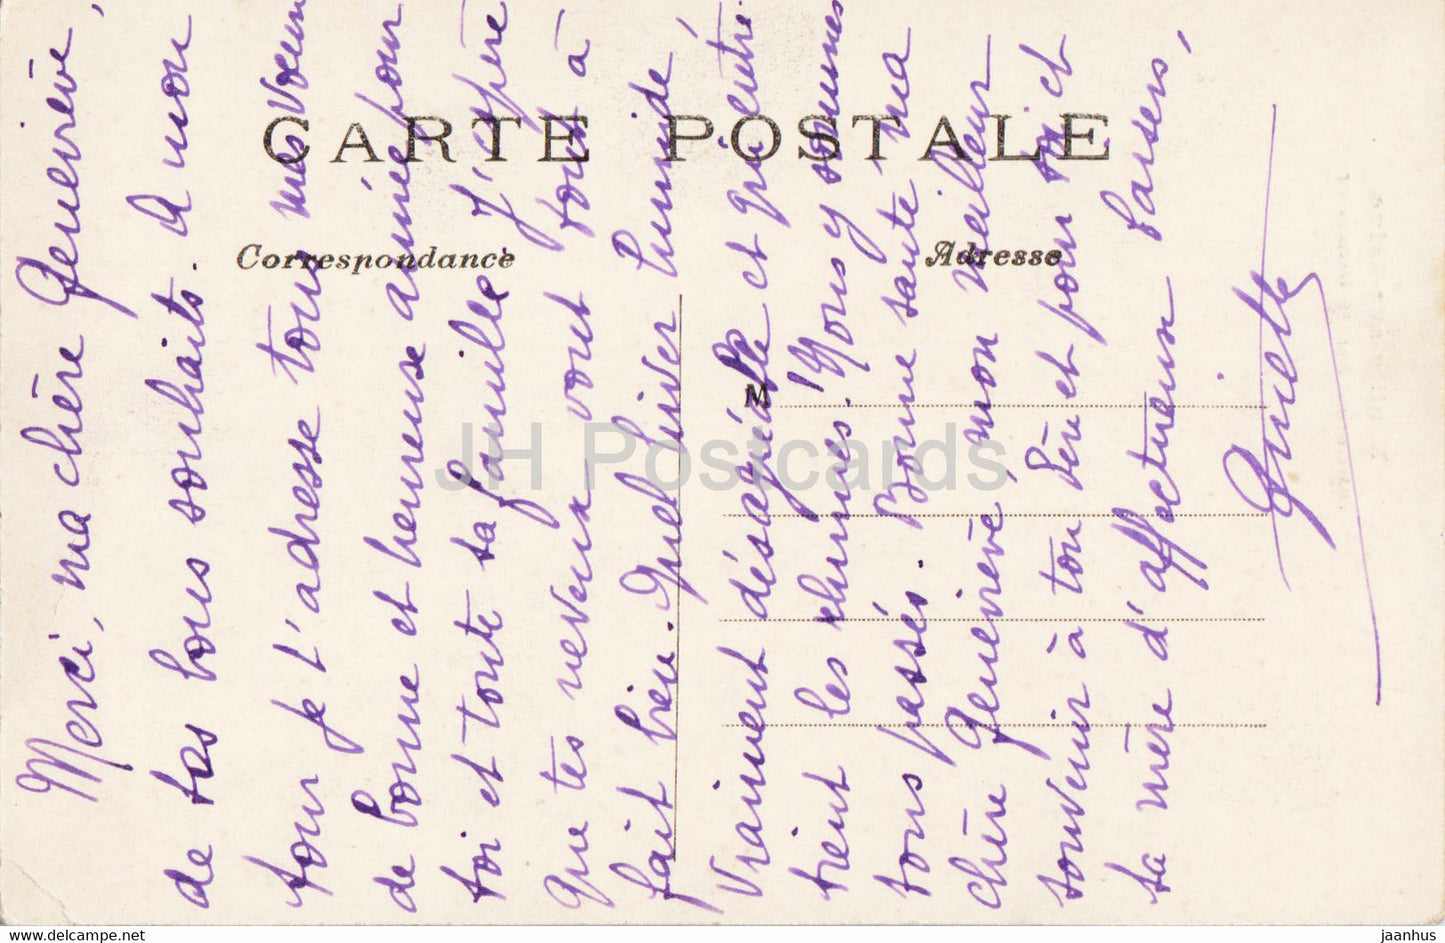 CARTE POSTALE
Correspondance
Adresse
M
Merci, ma chère Geneviève,
de tes bons souhaits. A mon
tour je t'adresse tous mes voeux
de bonne et heureuse année pour
toi et toute ta famille. J'espère
que tes neveux vont tout à
fait bien. Quel hiver humide
vraiment désagréable et qui entre-
tient les rhumes! Nous y sommes
tous passés. Bonne santé ma
chère Geneviève, mon meilleur
souvenir à ton père et pour toi et
ta mère d'affectueux baisers,
JH Postcards
www.delcampe.net
jaanhus